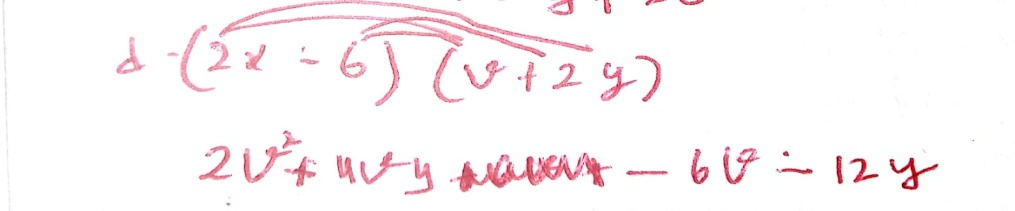 d-(2x - 6) (v + 2y)
2v² + 4vy - 6v - 12y